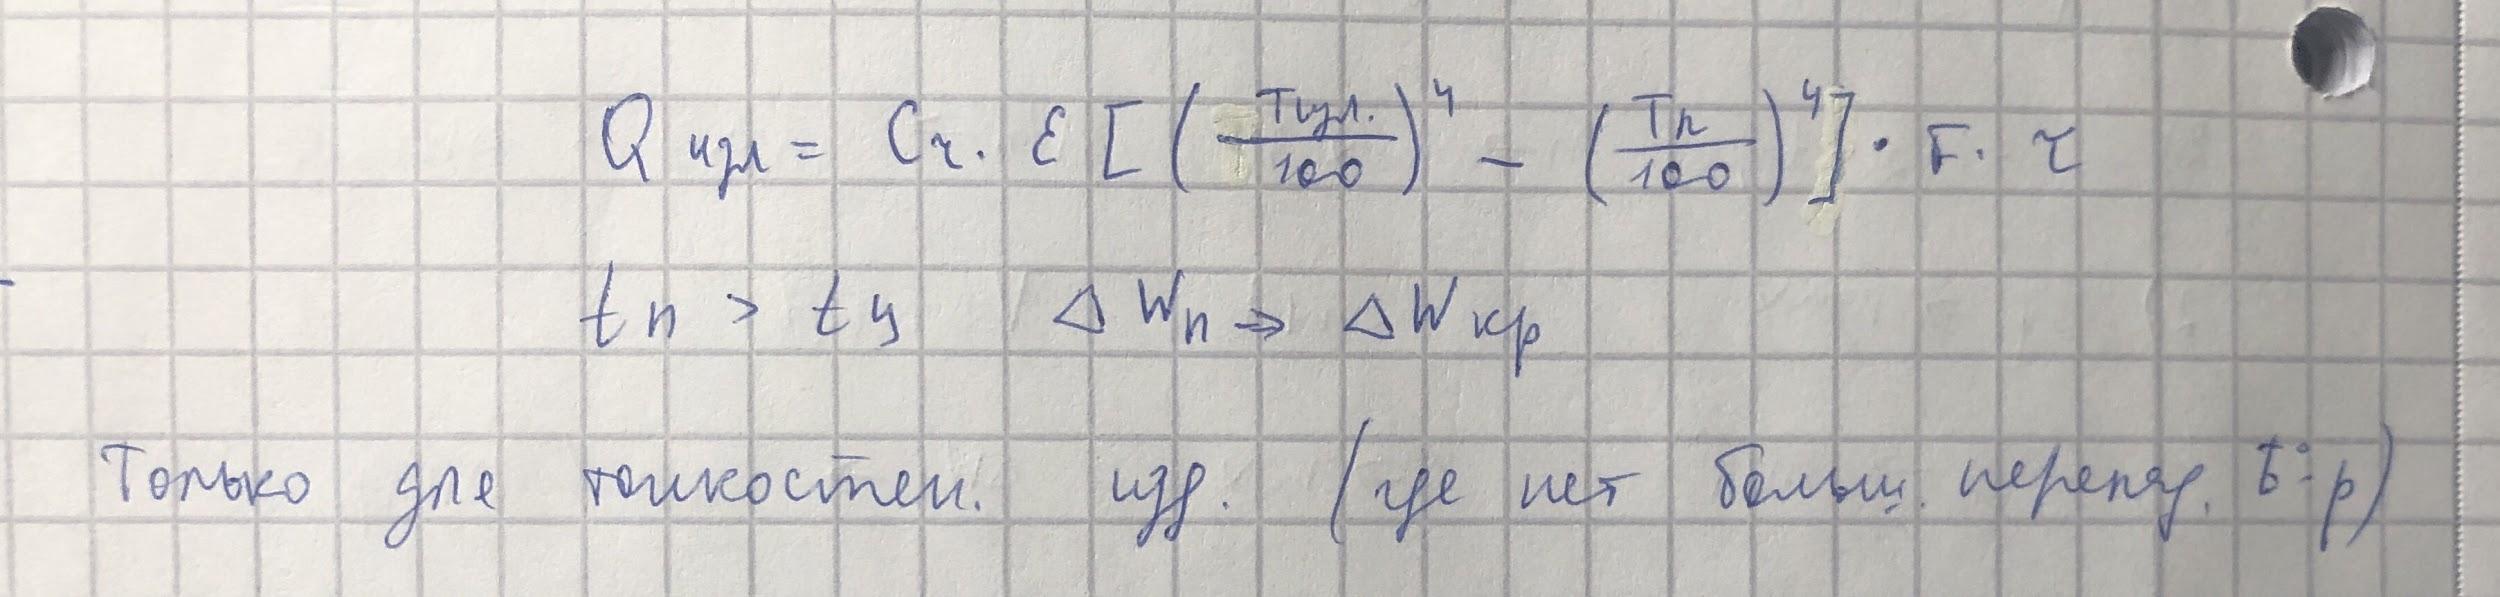 Q изл = Cч. ε [(Tизл./100)⁴ − (Tп/100)⁴] · F · τ
tп > tц Δ Wп → Δ Wкр
Только для тонкостен. изд. (где нет больш. перепад. t°-р)